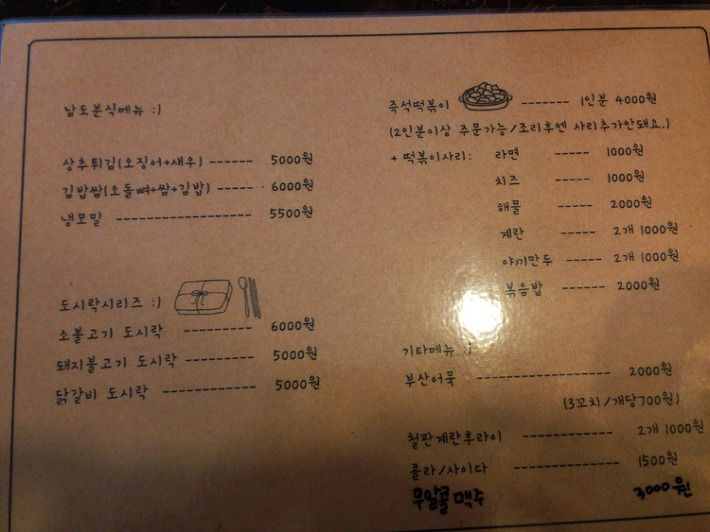 남도분식메뉴 :)
상추튀김(오징어+새우) ------ 5000원
김밥쌈(오돌뼈+쌈+김밥) ----- 6000원
냉모밀 ---------------- 5500원
도시락시리즈 :)
소불고기 도시락 --------- 6000원
돼지불고기 도시락 --------- 5000원
닭갈비 도시락 ------------ 5000원
즉석떡볶이 ------- 1인분 4000원
(2인분이상 주문가능/조리후엔 사리추가안돼요.)
+ 떡볶이사리: 라면 ----- 1000원
치즈 ----- 1000원
해물 ----- 2000원
계란 ----- 2개 1000원
야끼만두 ----- 2개 1000원
볶음밥 ----- 2000원
기타메뉴 :)
부산어묵 ------------------- 2000원
(3꼬치/개당700원)
철판계란후라이 ------------- 2개 1000원
콜라/사이다 --------------- 1500원
무알콜 맥주 3000원